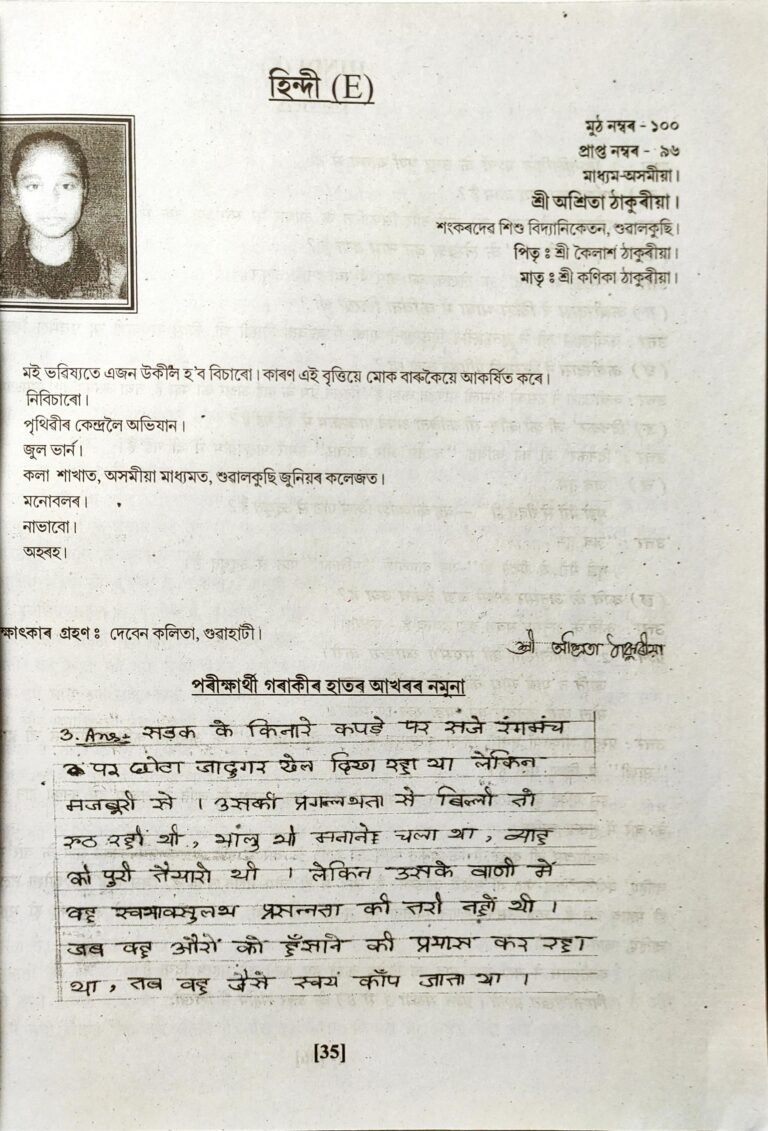 হিন্দী (E)
মুঠ নম্বৰ - ১০০
প্ৰাপ্ত নম্বৰ - ৯৬
মাধ্যম-অসমীয়া।
শ্ৰী অশ্ৰিতা ঠাকুৰীয়া।
শংকৰদেৱ শিশু বিদ্যানিকেতন, শুৱালকুছি।
পিতৃ ঃ শ্ৰী কৈলাশ ঠাকুৰীয়া।
মাতৃ ঃ শ্ৰী কণিকা ঠাকুৰীয়া।
মই ভবিষ্যতে এজন উকীল হ'ব বিচাৰো। কাৰণ এই বৃত্তিয়ে মোক বাৰুকৈয়ে আকৰ্ষিত কৰে।
নিবিচাৰো।
পৃথিৱীৰ কেন্দ্ৰলৈ অভিযান।
জুল ভাৰ্ন।
কলা শাখাত, অসমীয়া মাধ্যমত, শুৱালকুছি জুনিয়ৰ কলেজত।
মনোবলৰ।
নাভাবো।
অহৰহ।
ক্ষাৎকাৰ গ্ৰহণ ঃ দেবেন কলিতা, গুৱাহাটী।
শ্ৰী অশ্ৰিতা ঠাকুৰীয়া
পৰীক্ষাৰ্থী গৰাকীৰ হাতৰ আখৰৰ নমুনা
3. Ans:- सड़क के किनारे कपड़े पर सजे रंगमंच
पर छोटा जादुगर खेल दिखा रहा था लेकिन
मजबुरी से । उसकी प्रगल्भता से बिल्ली तो
रुठ रही थी, भालु भी मनाने चला था, व्याह
की पुरी तैयारी थी । लेकिन उसके वाणी में
वह स्वभावसुलभ प्रसन्नता की तरी नहीं थी ।
जब वह औरों को हँसाने की प्रयास कर रहा
था, तब वह जैसे स्वयं काँप जाता था ।
[35]